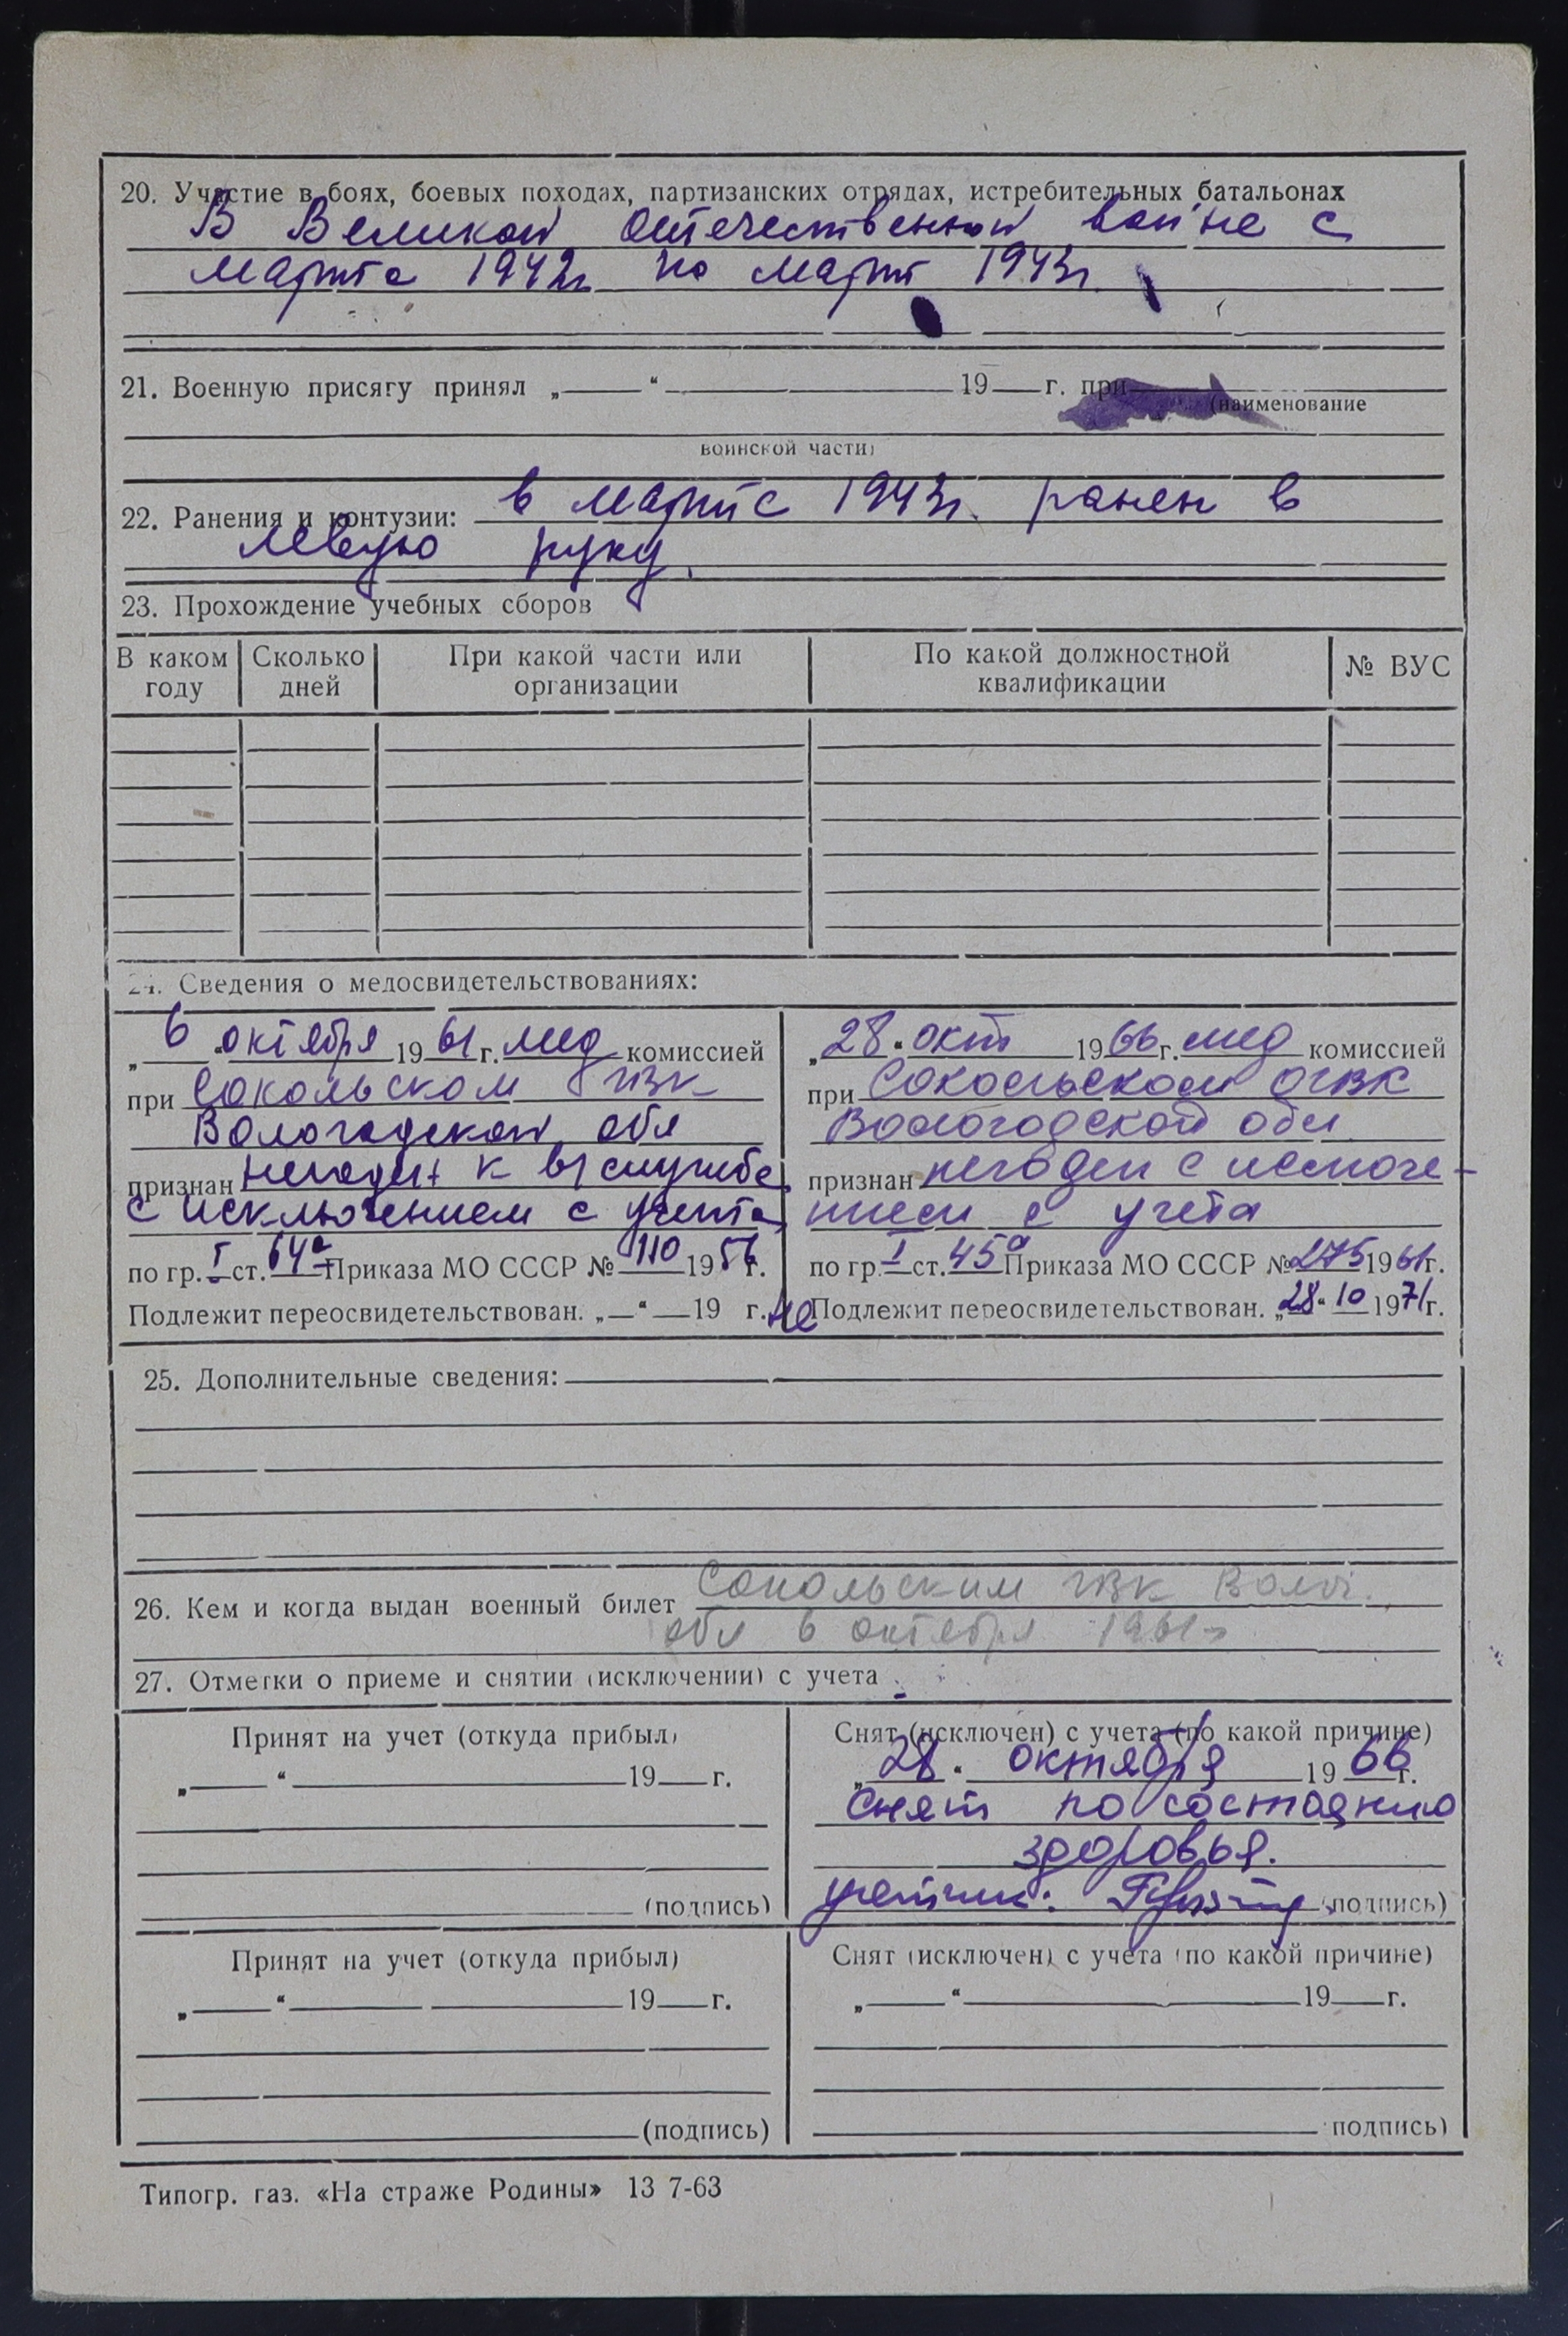 20. Участие в боях, боевых походах, партизанских отрядах, истребительных батальонах
В Великой Отечественной войне с
марта 1942г. по март 1943г.
21. Военную присягу принял „ “ 19 г. при
(наименование
воинской части)
22. Ранения и контузии: в марте 1943г. ранен в
левую руку.
23. Прохождение учебных сборов
В каком году
Сколько дней
При какой части или организации
По какой должностной квалификации
№ ВУС
24. Сведения о медосвидетельствованиях:
„ 6 “ октября 1961 г. мед комиссией
при Сокольском ГВК
Вологодской обл
признан негоден к в/службе
с исключением с учета
по гр. I ст. 64а Приказа МО СССР № 110 1956 г.
Подлежит переосвидетельствован. „ “ 19 г.
„28“ окт 1966г. мед комиссией
при Сокольском ОГВК
Вологодской обл
признан негоден с исключе-
нием с учета
по гр. I ст. 45а Приказа МО СССР № 275 1961г.
не Подлежит переосвидетельствован. „28“ 10 1971г.
25. Дополнительные сведения:
26. Кем и когда выдан военный билет Сокольским ГВК Волог.
обл 6 октября 1961г
27. Отметки о приеме и снятии (исключении) с учета
Принят на учет (откуда прибыл)
„ “ 19 г.
(подпись)
Снят (исключен) с учета (по какой причине)
„28“ октября 1966г.
Снят по состоянию
здоровья.
учетчик: (подпись)
Принят на учет (откуда прибыл)
„ “ 19 г.
(подпись)
Снят (исключен) с учета (по какой причине)
„ “ 19 г.
подпись)
Типогр. газ. «На страже Родины» 13 7-63